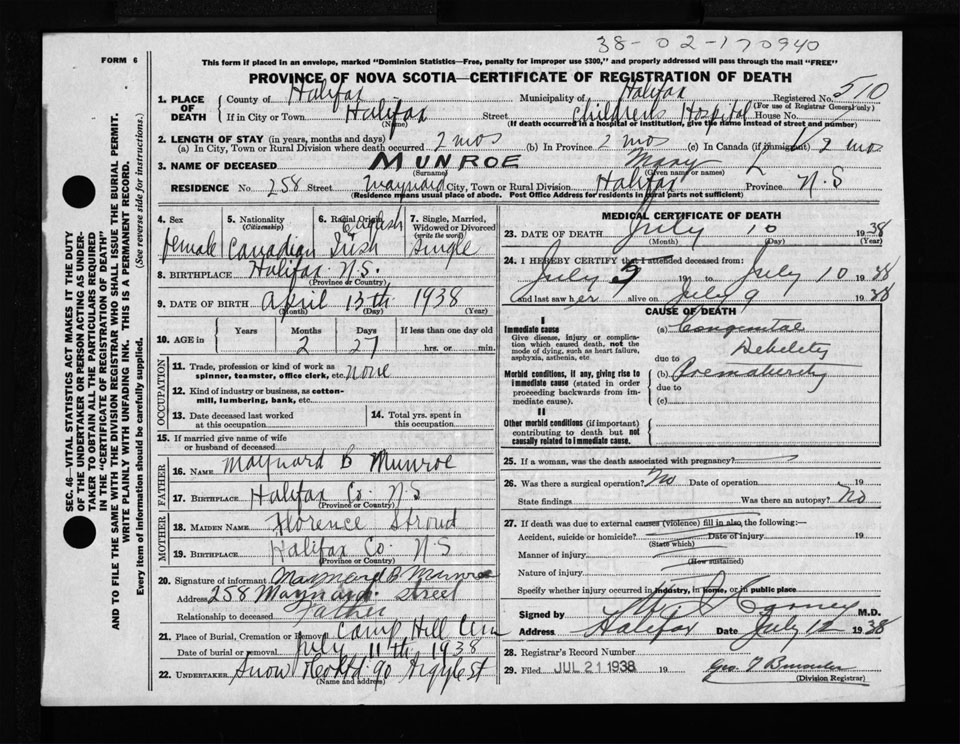 38-02-170940
FORM 6
This form if placed in an envelope, marked "Dominion Statistics—Free, penalty for improper use $300," and properly addressed will pass through the mail "FREE"
PROVINCE OF NOVA SCOTIA—CERTIFICATE OF REGISTRATION OF DEATH
1. PLACE OF DEATH
County of Halifax Municipality of Halifax Registered No. 510
(For use of Registrar General only)
If in City or Town Halifax Street Children's Hospital House No.
(Name) (If death occurred in a hospital or institution, give the name instead of street and number)
2. LENGTH OF STAY (in years, months and days)
(a) In City, Town or Rural Division where death occurred 2 mos (b) In Province 2 mos (c) In Canada (if immigrant) 2 mos
3. NAME OF DECEASED MUNROE Mary L
(Surname) (Given name or names)
RESIDENCE No. 258 Street Maynard City, Town or Rural Division Halifax Province N.S
(Residence means usual place of abode. Post Office Address for residents in rural parts not sufficient)
4. Sex
female
5. Nationality
(Citizenship)
Canadian
6. Racial Origin
English
Irish
7. Single, Married, Widowed or Divorced
(write the word)
Single
8. BIRTHPLACE Halifax N.S.
(Province or Country)
9. DATE OF BIRTH April 13th 1938
(Month) (Day) (Year)
10. AGE in
Years
Months
2
Days
27
If less than one day old
hrs. or min.
OCCUPATION
11. Trade, profession or kind of work as
spinner, teamster, office clerk, etc. none
12. Kind of industry or business, as cotton-
mill, lumbering, bank, etc.
13. Date deceased last worked
at this occupation
14. Total yrs. spent in
this occupation
15. If married give name of wife
or husband of deceased
FATHER
16. NAME Maynard B Munroe
17. BIRTHPLACE Halifax Co. N.S
(Province or Country)
MOTHER
18. MAIDEN NAME Florence Stroud
19. BIRTHPLACE Halifax Co. N S
(Province or Country)
20. Signature of informant Maynard B Munroe
Address 258 Maynard Street
Relationship to deceased Father
21. Place of Burial, Cremation or Removal Camp Hill Cem
Date of burial or removal July 11th 1938
22. UNDERTAKER Snow & Co Ltd 90 Argyle St
(Name and address)
MEDICAL CERTIFICATE OF DEATH
23. DATE OF DEATH July 10 1938
(Month) (Day) (Year)
24. I HEREBY CERTIFY that I attended deceased from:
July 5 19 to July 10 1938
and last saw her alive on July 9 1938
CAUSE OF DEATH
I
Immediate cause
Give disease, injury or complica-
tion which caused death, not the
mode of dying, such as heart failure,
asphyxia, asthenia, etc.
(a) Congenital
Debility
due to
Morbid conditions, if any, giving rise to
immediate cause (stated in order
proceeding backwards from im-
mediate cause).
(b) Prematurity
due to
(c)
II
Other morbid conditions (if important)
contributing to death but not
causally related to immediate cause.
25. If a woman, was the death associated with pregnancy?
26. Was there a surgical operation? No Date of operation 19
State findings Was there an autopsy? No
27. If death was due to external causes (violence) fill in also the following:—
Accident, suicide or homicide? Date of injury 19
(State which)
Manner of injury
(How sustained)
Nature of injury
Specify whether injury occurred in industry, in home, or in public place
Signed by Carney M.D.
Address Halifax Date July 12 1938
28. Registrar's Record Number
29. Filed JUL 21 1938 19
(Division Registrar)
SEC. 46—VITAL STATISTICS ACT MAKES IT THE DUTY
OF THE UNDERTAKER OR PERSON ACTING AS UNDER-
TAKER TO OBTAIN ALL THE PARTICULARS REQUIRED
IN THE "CERTIFICATE OF REGISTRATION OF DEATH"
AND TO FILE THE SAME WITH THE DIVISION REGISTRAR WHO SHALL ISSUE THE BURIAL PERMIT.
WRITE PLAINLY WITH UNFADING INK. THIS IS A PERMANENT RECORD.
Every item of information should be carefully supplied. (See reverse side for instructions.)